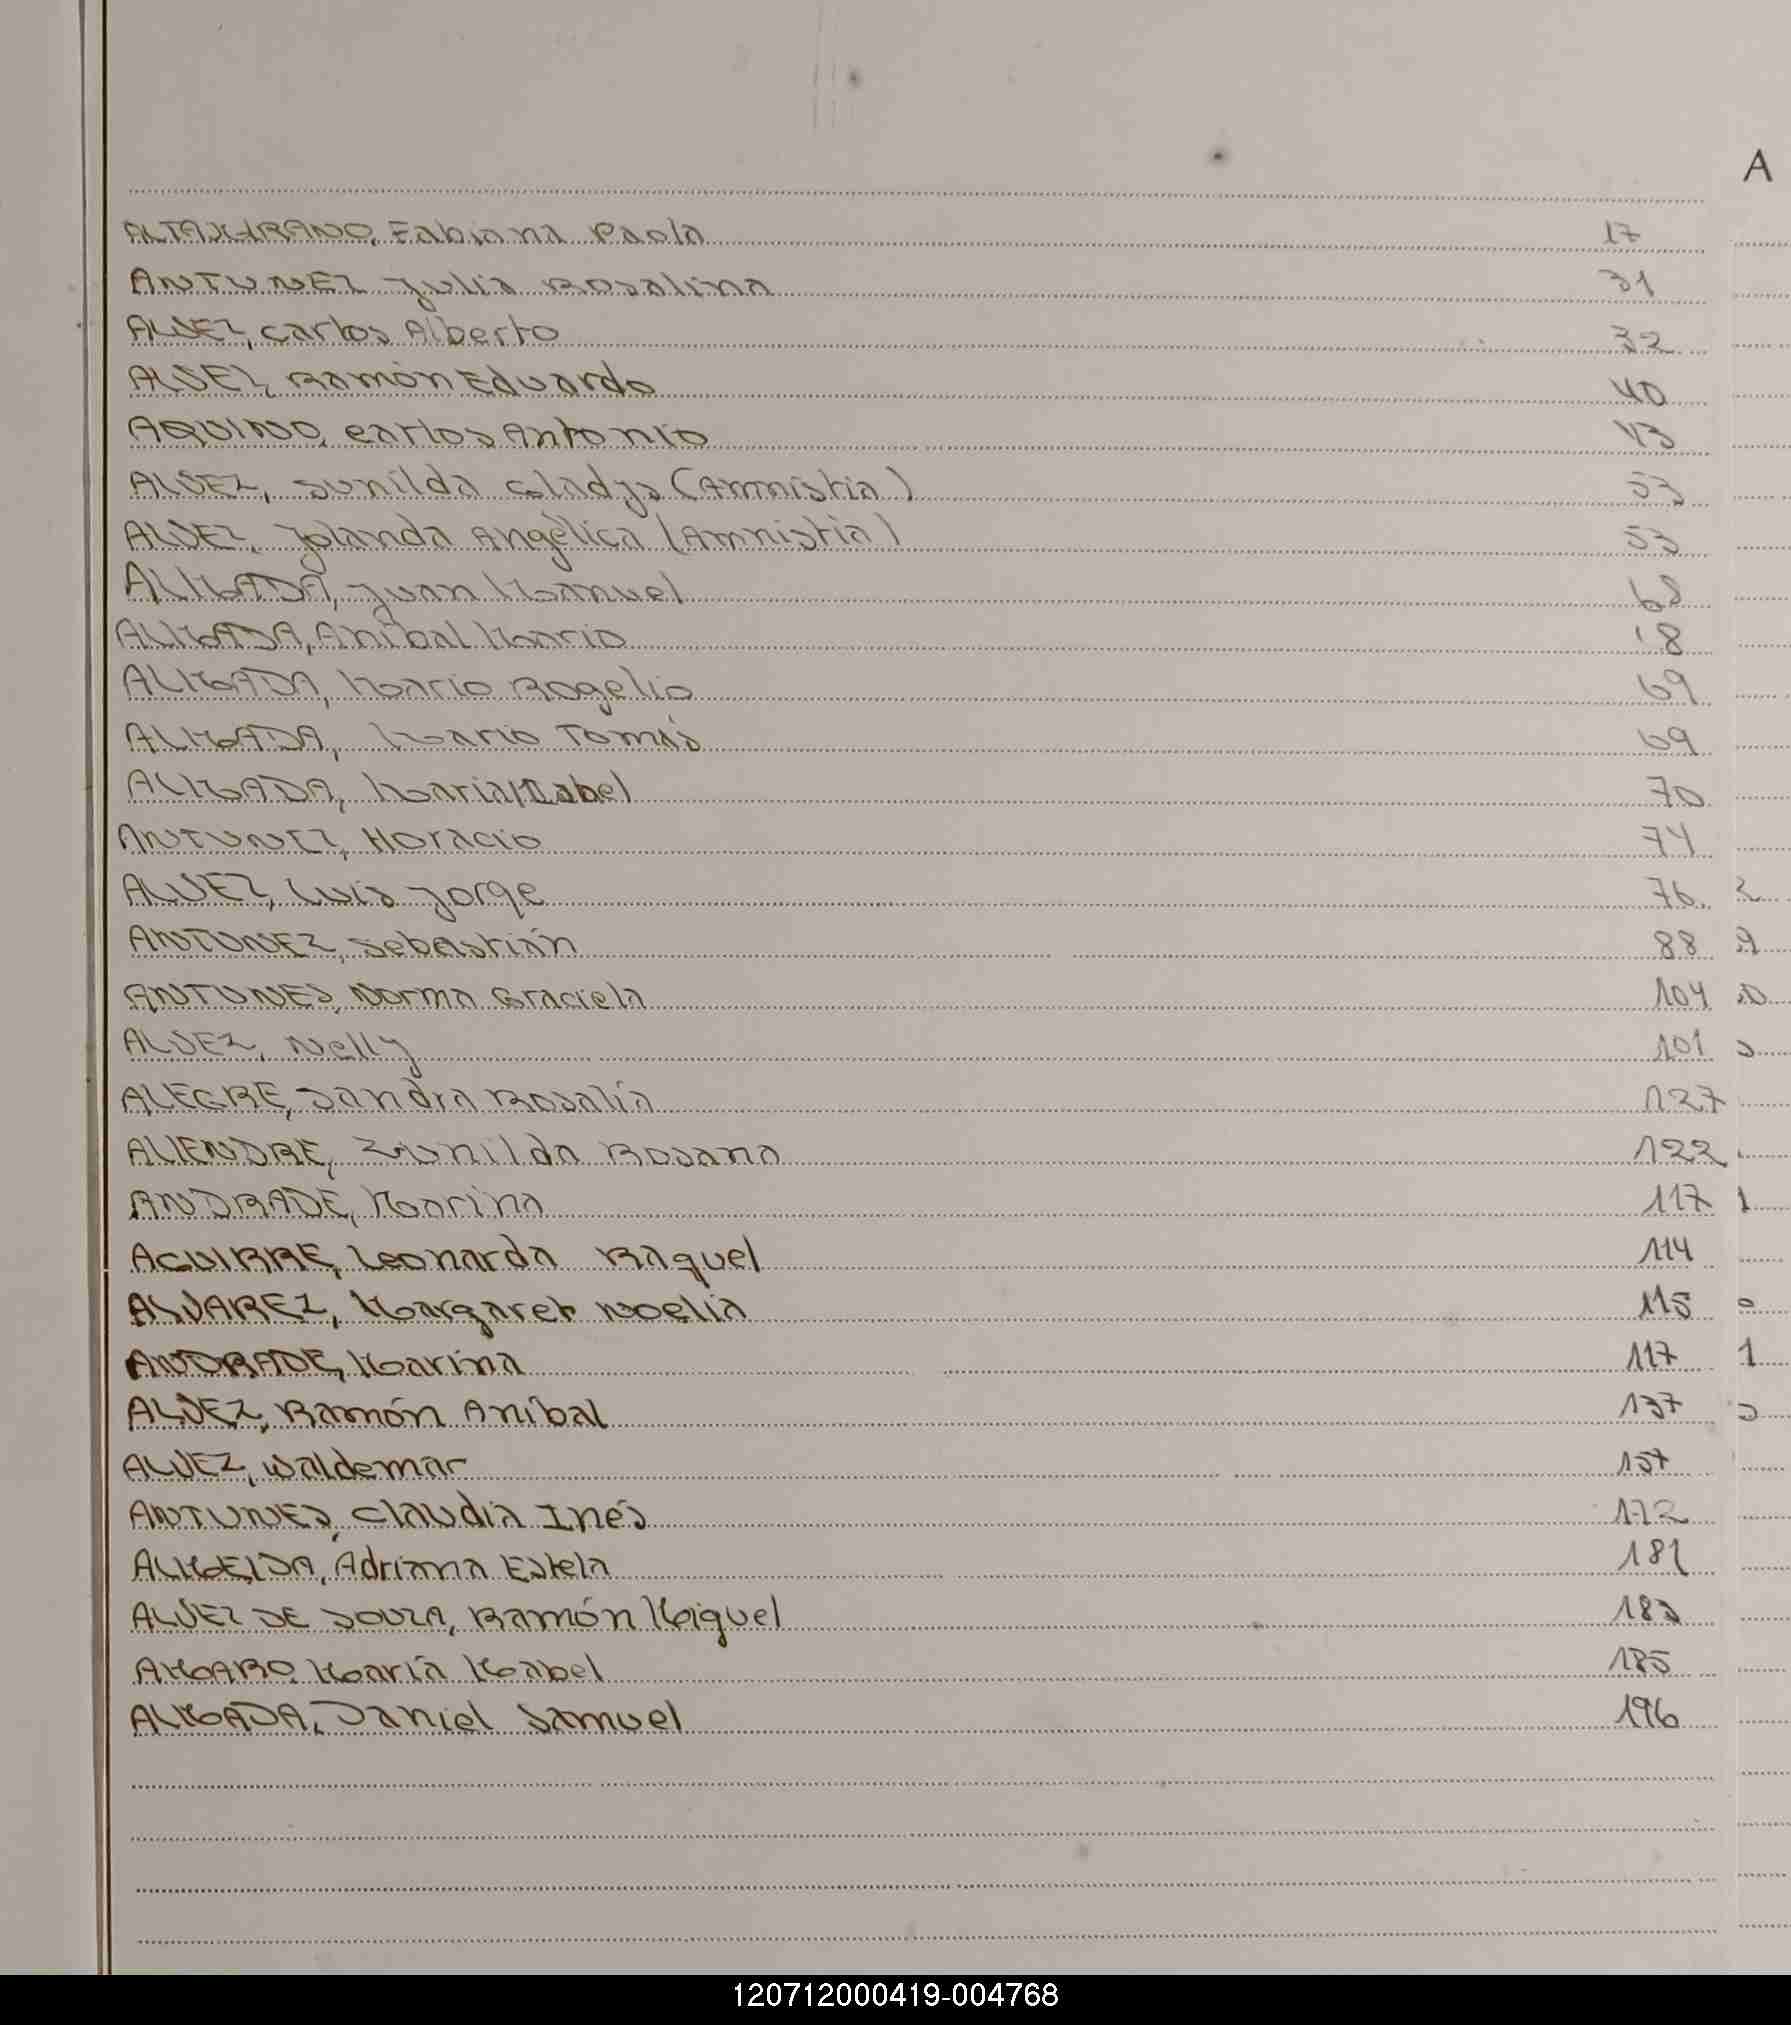 A
ALTAMIRANO, Fabiana Paola 17
ANTUNEZ Julia Rosalina 31
ALVEZ, Carlos Alberto 32
ALVEZ, Ramón Eduardo 40
AQUINO, Carlos Antonio 43
ALVEZ, Sunilda Gladys (Amnistia) 53
ALVEZ, Yolanda Angélica (Amnistia) 53
ALMADA, Juan Manuel 68
ALMADA, Anibal Mario 8
ALMADA, Mario Rogelio 69
ALMADA, Mario Tomás 69
ALMADA, Maria Isabel 70
ANTUNEZ, Horacio 74
ALVEZ, Luis Jorge 76
ANTUNEZ, Sebastián 88
ANTUNES, Norma Graciela 104
ALVEZ, Nelly 101
ALEGRE, Sandra Rosalía 127
ALIENDRE, Zunilda Rosana 122
ANDRADE, Marina 117
AGUIRRE, Leonarda Raquel 114
ALVAREZ, Margaret Noelia 115
ANDRADE, Marina 117
ALVEZ, Ramón Anibal 137
ALVEZ, Waldemar 157
ANTUNES, Claudia Inés 172
ALMEIDA, Adriana Estela 181
ALVEZ DE SOUZA, Ramón Miguel 183
AMARO, María Mabel 185
ALMADA, Daniel Samuel 196
120712000419-004768